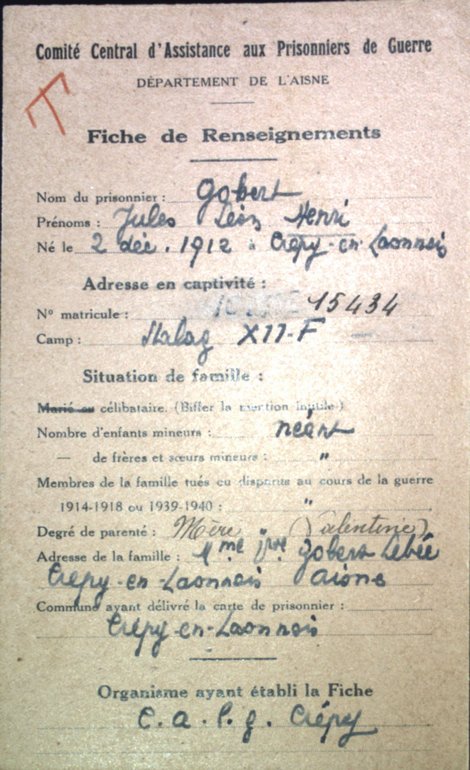 Comité Central d'Assistance aux Prisonniers de Guerre
DÉPARTEMENT DE L'AISNE
T
Fiche de Renseignements
Nom du prisonnier : Gobert
Prénoms : Jules Léon Henri
Né le 2 déc. 1912 à Crépy-en-Laonnois
Adresse en captivité :
N° matricule : 15434
Camp : Stalag XII-F
Situation de famille :
Marié ou célibataire. (Biffer la mention inutile.)
Nombre d'enfants mineurs : néant
— de frères et sœurs mineurs : "
Membres de la famille tués ou disparus au cours de la guerre
1914-1918 ou 1939-1940 : "
Degré de parenté : Mère " (Valentine)
Adresse de la famille : Mme Gobert
Crépy-en-Laonnois Aisne
Commune ayant délivré la carte de prisonnier :
Crépy-en-Laonnois
Organisme ayant établi la Fiche
C.a.p.g. Crépy